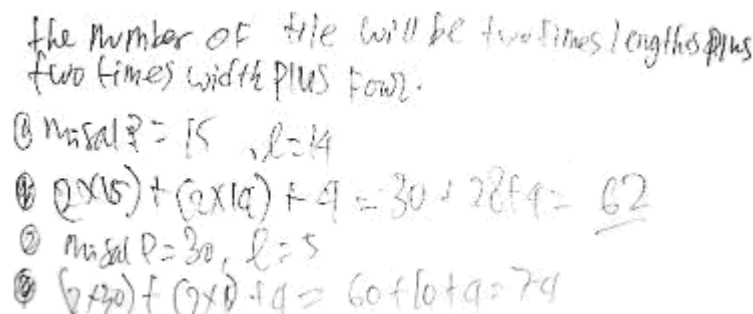 the number of tile will be two times lengths plus
two times width plus Four.
① misal P = 15 , l = 14
(2x15) + (2x14) + 4 = 30 + 28 + 4 = 62
② misal P = 30, l = 5
(2x30) + (2x5) + 4 = 60 + 10 + 4 = 74